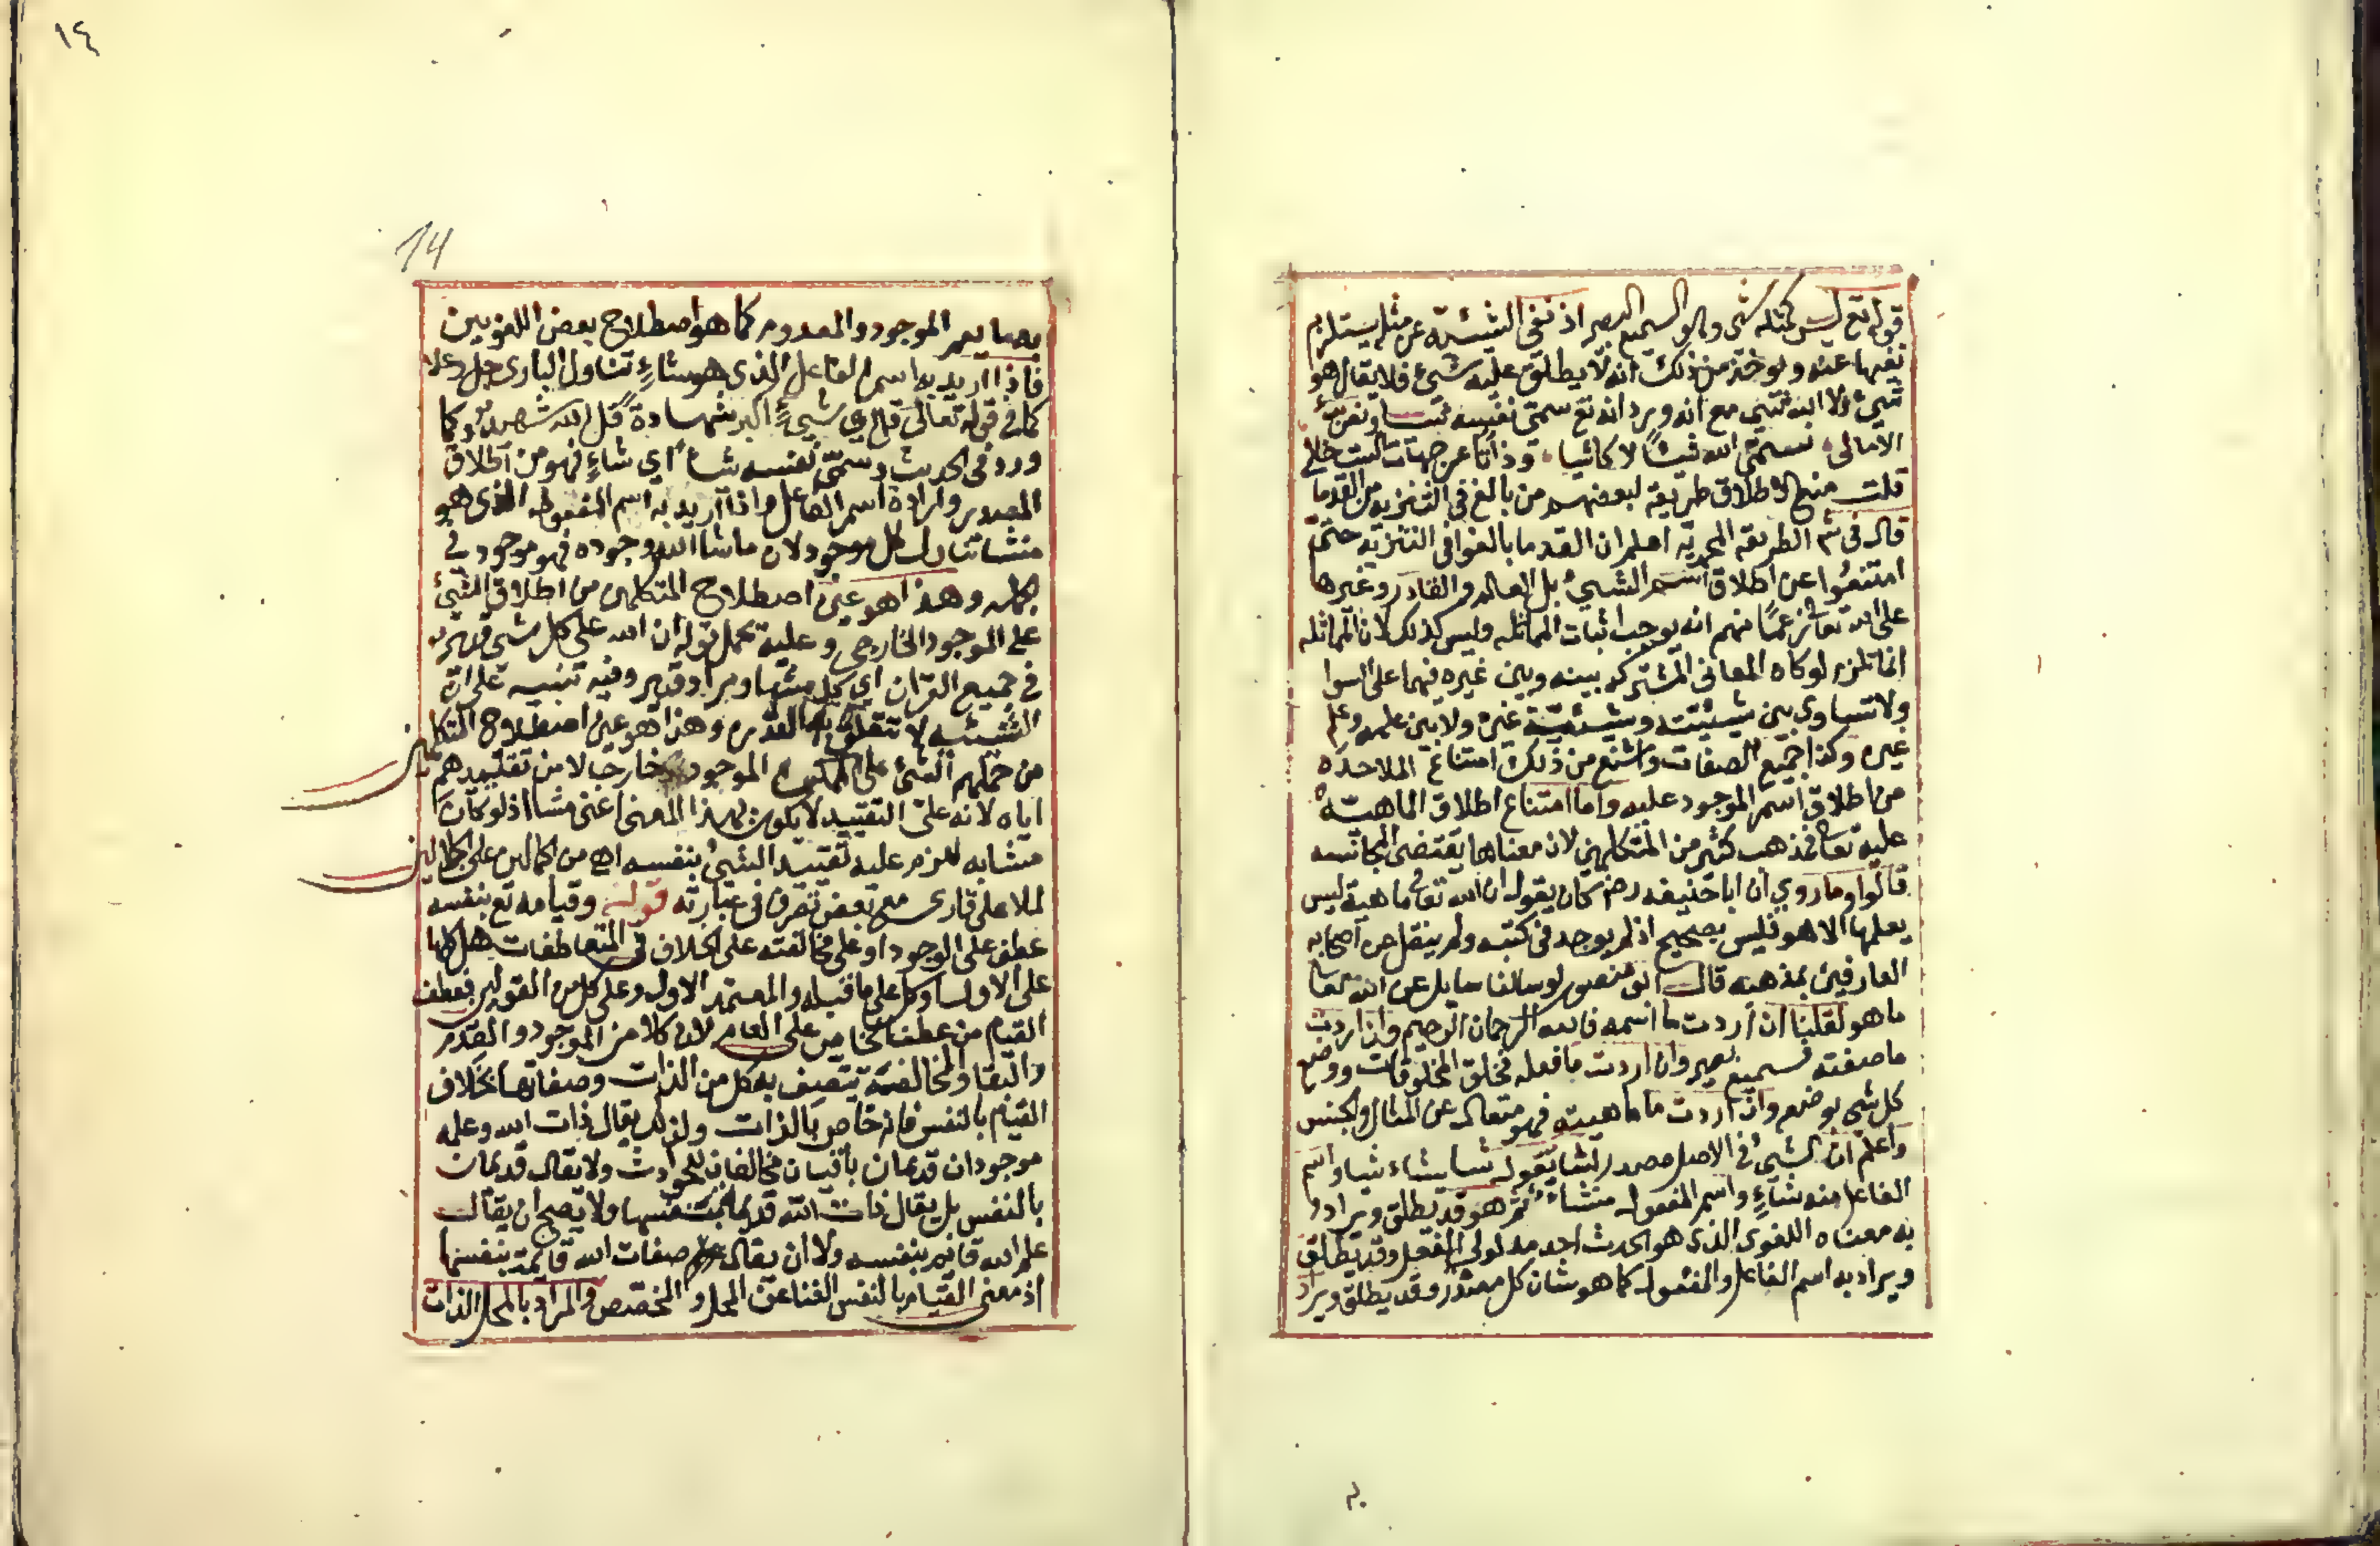 قوله تع ليس كمثله شي وهو السميع البصير اذ نفى الشيئية عن مثله يستلزم
نفيها عنه ويوخذ من ذلك انه لا يطلق عليه شيئ فلا يقال هو
شيئ ولا انه شيئ مع انه ويرد انه تع سمى نفسه شيا وفي بدء
الامالى نسمي الله شيئًا لا كاشيا وذاتا عن جهات الست خالي
قلت منع الاطلاق طريقة لبعضهم من بالغ فى التنزيه من القدما
قال فى شم الطريقه المحمدية اعلم ان القدما بالغوا فى التنزيه حتى
امتنعوا عن اطلاق اسم الشيئ بل العالم والقادر وغيرها
على الله تعالى زعمًا منهم انه يوجب اثبات المماثله وليس كذلك لان المماثله
انما تلزم لو كان المعانى المشتركه بينه وبين غيره فيهما على السوا
ولا تساوي بين شيئيته وشيئية غيره ولا بين علمه وعلم
غيره وكذا جميع الصفات واشنع من ذلك امتناع الملاحده
من اطلاق اسم الموجود عليه واما امتناع اطلاق الماهية
عليه تعالى فمذهب كثير من المتكلمين لان معناها يقتضى المجانسه
قالوا وما روي أن ابا حنيفه رضـ كان يقول ان لله تعالى ماهية ليس
يعلمها الا هو فليس بصحيح اذ لم يوجد فى كتبه ولم ينقل عن اصحابه
العارفين بمذهبه قال ابو منصور لو سالنا سايل عن الله تعالى
ما هو لقلنا ان أردت ما اسمه فالله الرحمان الرحيم وان اردت
ما صفته فسميع بصير وان اردت ما فعله فخلق المخلوقات ووضع
كل شي بوضعه وان اردت ما ماهيته فهو متعال عن المثال والجنس
واعلم ان الشيئ فى الاصل مصدر لشا تقول شا يشاء شيا واسم
الفاعل منه شاءٍ واسم المفعول منشاء ثم هو قد يطلق ويراد
به معناه اللغوى الذى هو الحدث احد مدلولى الفعل وقد يطلق
ويراد به اسم الفاعل والمفعول كما هو شان كل مصدر وقد يطلق ويراد
١٤
14
به ما يعم الموجود والمعدوم كما هو اصطلاح بعض اللغويين
فاذا اريد به اسم الفاعل الذى هو شاءٍ تناول البارى جل وعلا
كما فى قوله تعالى قل اي شيئٍ اكبر شهادة قل الله شهيد وكما
ورد فى الحديث وسمى نفسه شيا اي شاءٍ فهو من اطلاق
المصدر وارادة اسم الفاعل واذا اريد به اسم المفعول الذى هو
منشا تناول كل موجود لان ما شا الله وجوده فهو موجود في
الجمله وهذا هو عين اصطلاح المتكلمين من اطلاق الشيئ
على الموجود الخارجي وعليه يحمل قوله ان الله على كل شي قدير
فى جميع القرآن اي كل منشا ومراد قدير وفيه تنبيه على ان
الشيئيه لا تتعلق بها القدره وهذا هو عين اصطلاح المتكلمين
من حملهم الشئ على الممكن الموجود خارجا لا من تقييدهم
اياه لانه على التقييد لا يكون بهذا المعنى اعنى منشا اذ لو كان
منشا به للزم عليه تقييد الشيئ بنفسه اهـ من الجمالين على الجلالين
لملا على قارى مع بعض تصرف فى عبارته قوله وقيامه تع بنفسه
عطف على الوجود او على مخالفته على الخلاف فى المتعاطفات هل كلها
على الاول او كل على ما قبله والمعتمد الاول وعلى كل من القولين فعطف
القيام من عطف الخاص على العام لان كلا من الموجود والقدم
والبقا والمخالفة يتصف به كل من الذات وصفاتها بخلاف
القيام بالنفس فانه خاص بالذات ولذلك يقال ذات الله وعلمه
موجودان قديمان باقيان مخالفان للحوادث ولا يقال قديمان
بالنفس بل يقال ذات الله قديمة بنفسها ولا يصح ان يقال
علم الله قائم بنفسه ولا ان يقال صفات الله قايمة بنفسها
اذ معنى القيام بالنفس الغنا عن المحل والمخصص والمراد بالمحل الذات